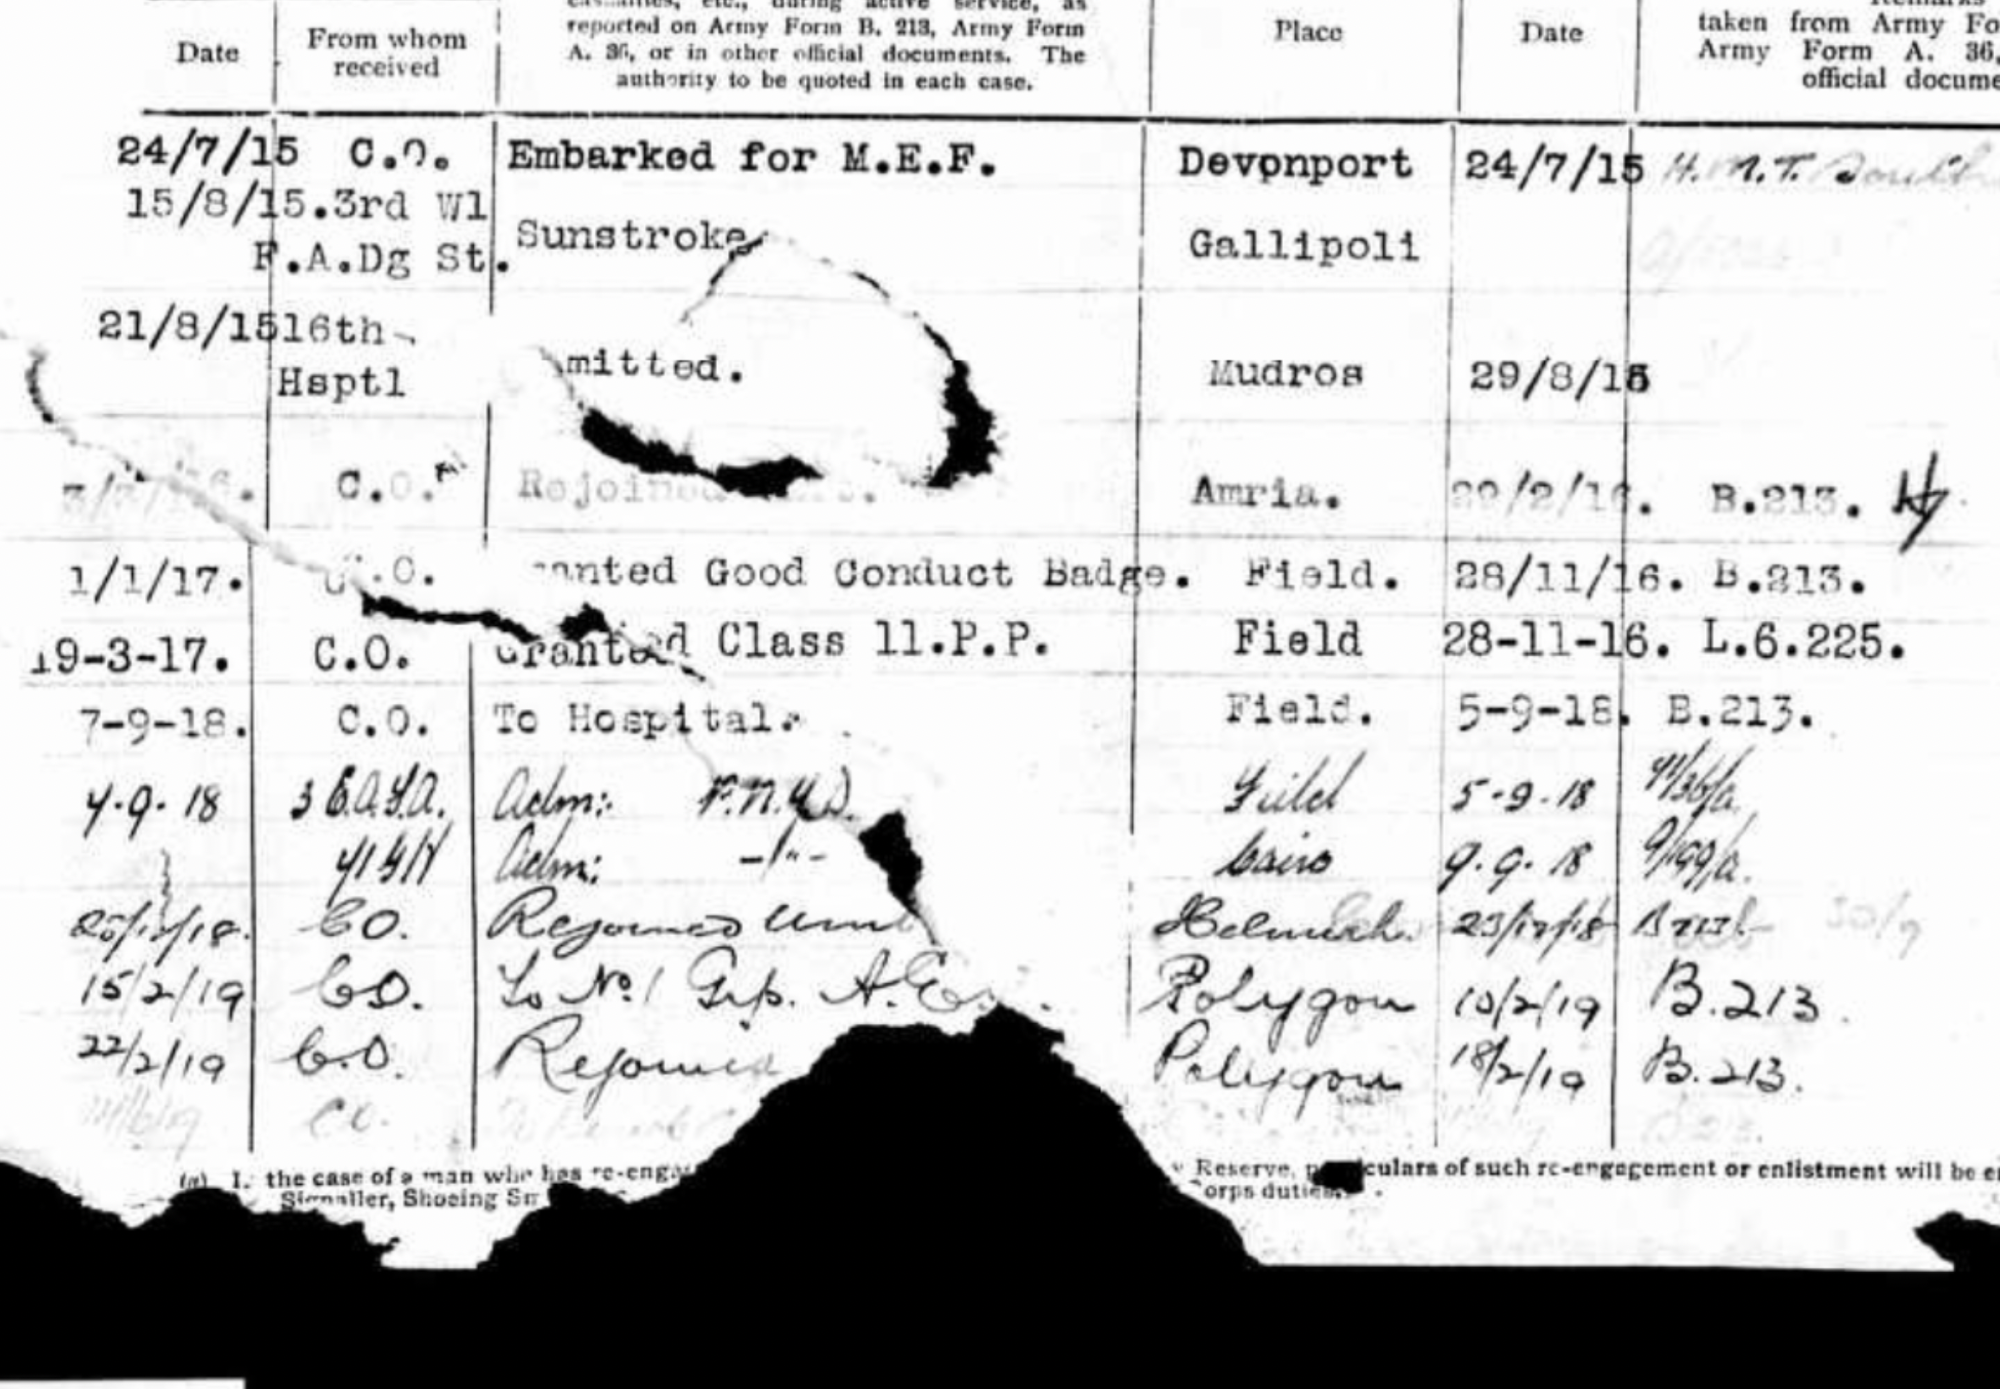 Date From whom received
reported on Army Form B. 213, Army Form
A. 36, or in other official documents. The
authority to be quoted in each case.
Place
Date
Remarks
taken from Army Fo
Army Form A. 36,
official docume
24/7/15 C.O. Embarked for M.E.F. Devonport 24/7/15 H.M.T.
15/8/15. 3rd Wl
F.A.Dg St. Sunstroke Gallipoli
21/8/15 16th
Hsptl mitted. Mudros 29/8/15
C.O. Rejoined Amria. 29/2/16. B.213.
1/1/17. C.O. anted Good Conduct Badge. Field. 28/11/16. B.213.
19-3-17. C.O. Granted Class 11.P.P. Field 28-11-16. L.6.225.
7-9-18. C.O. To Hospital. Field. 5-9-18. B.213.
Adm: Field 5-9-18
Adm: -"- Cairo 9.9.18
CO. Rejoined Unit Helmieh. B213
15/2/19 CO. To No. 1 Grp. A.E. Polygon 10/2/19 B.213.
22/2/19 C.O. Rejoined Polygon 18/2/19 B.213.
CO.
(a) In the case of a man who has re-eng Reserve, particulars of such re-engagement or enlistment will be e
Signaller, Shoeing Sm orps duties.